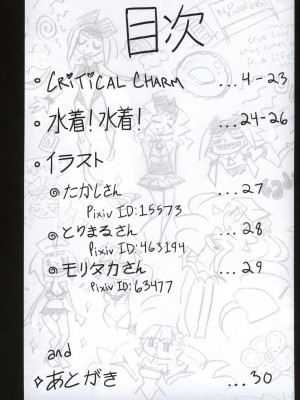 目次
CRITICAL CHARM ...4-23
水着!水着! ...24-26
イラスト
たかしさん ...27
Pixiv ID:15573
とりまるさん ...28
Pixiv ID:463194
モリタカさん ...29
Pixiv ID:63477
and
あとがき ...30